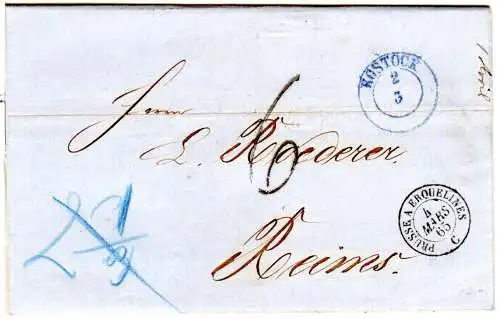 ROSTOCK
2
3
Herrn
L. Roederer.
Reims.
PRUSSE A ERQUELINES
4
MARS
65
C